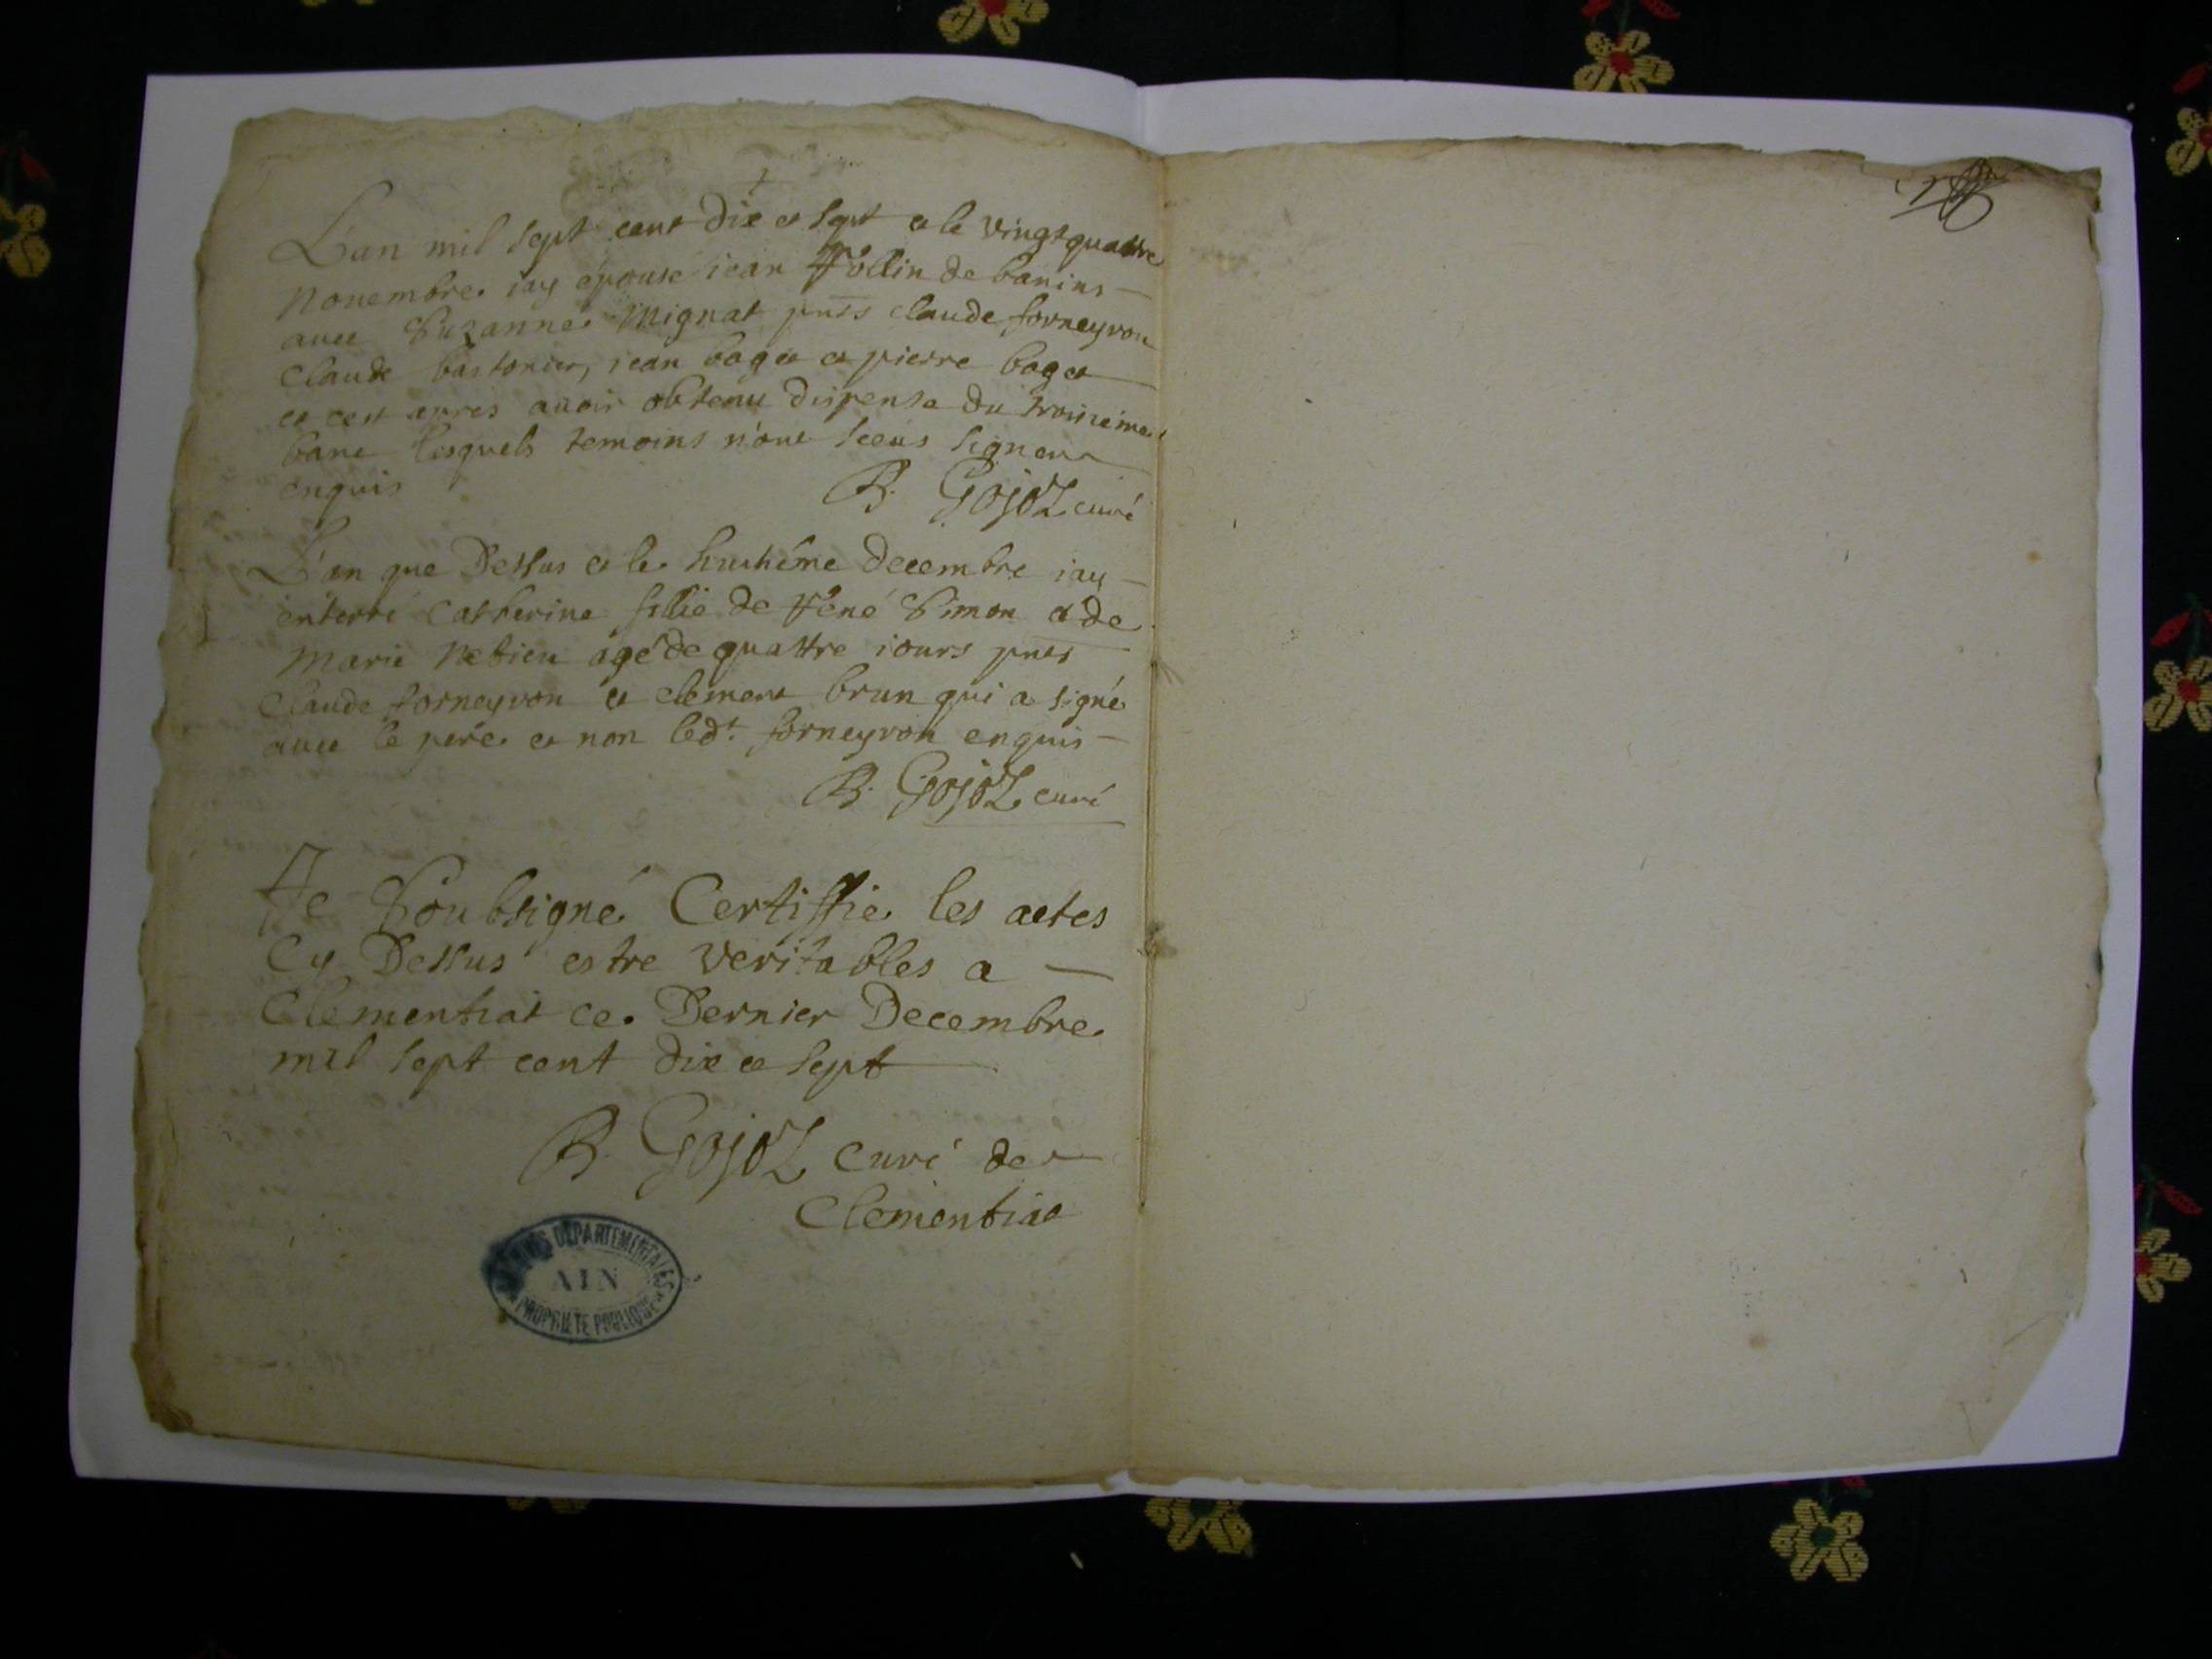 L'an mil sept cent dix et sept et le vingt quattre
Novembre iay epousé iean Vollin de banins
avec Suzanne Mignat pnts claude forneyron
Claude bastonier, iean baget et pierre baget
et cest apres avoir obtenu dispense du troisiéme
banc lesquels temoins n'ont sceus signer
enquis
B. Gojoz curé
L'an que Dessus et le huitiéme decembre iay
enterré Catherine fillie de René Simon et de
Marie Nebieu agé de quattre iours pnts
Claude forneyron et clement brun qui a signé
avec le pére et non led.t forneyron enquis
B. Gojoz curé
Je Soubsigné Certiffie les actes
Cy Dessus estre veritables a
Clementiat ce Dernier Decembre
mil sept cent dix et sept
B. Gojoz curé de
Clementiat
ARCHIVES DEPARTEMENTALES
AIN
PROPRIETE PUBLIQUE